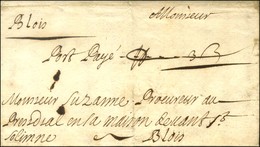 Blois
AMonsieur
Port Payé
Monsieur Suzanne Procureur au
Presidial en sa maison devant St
Solimne
Blois